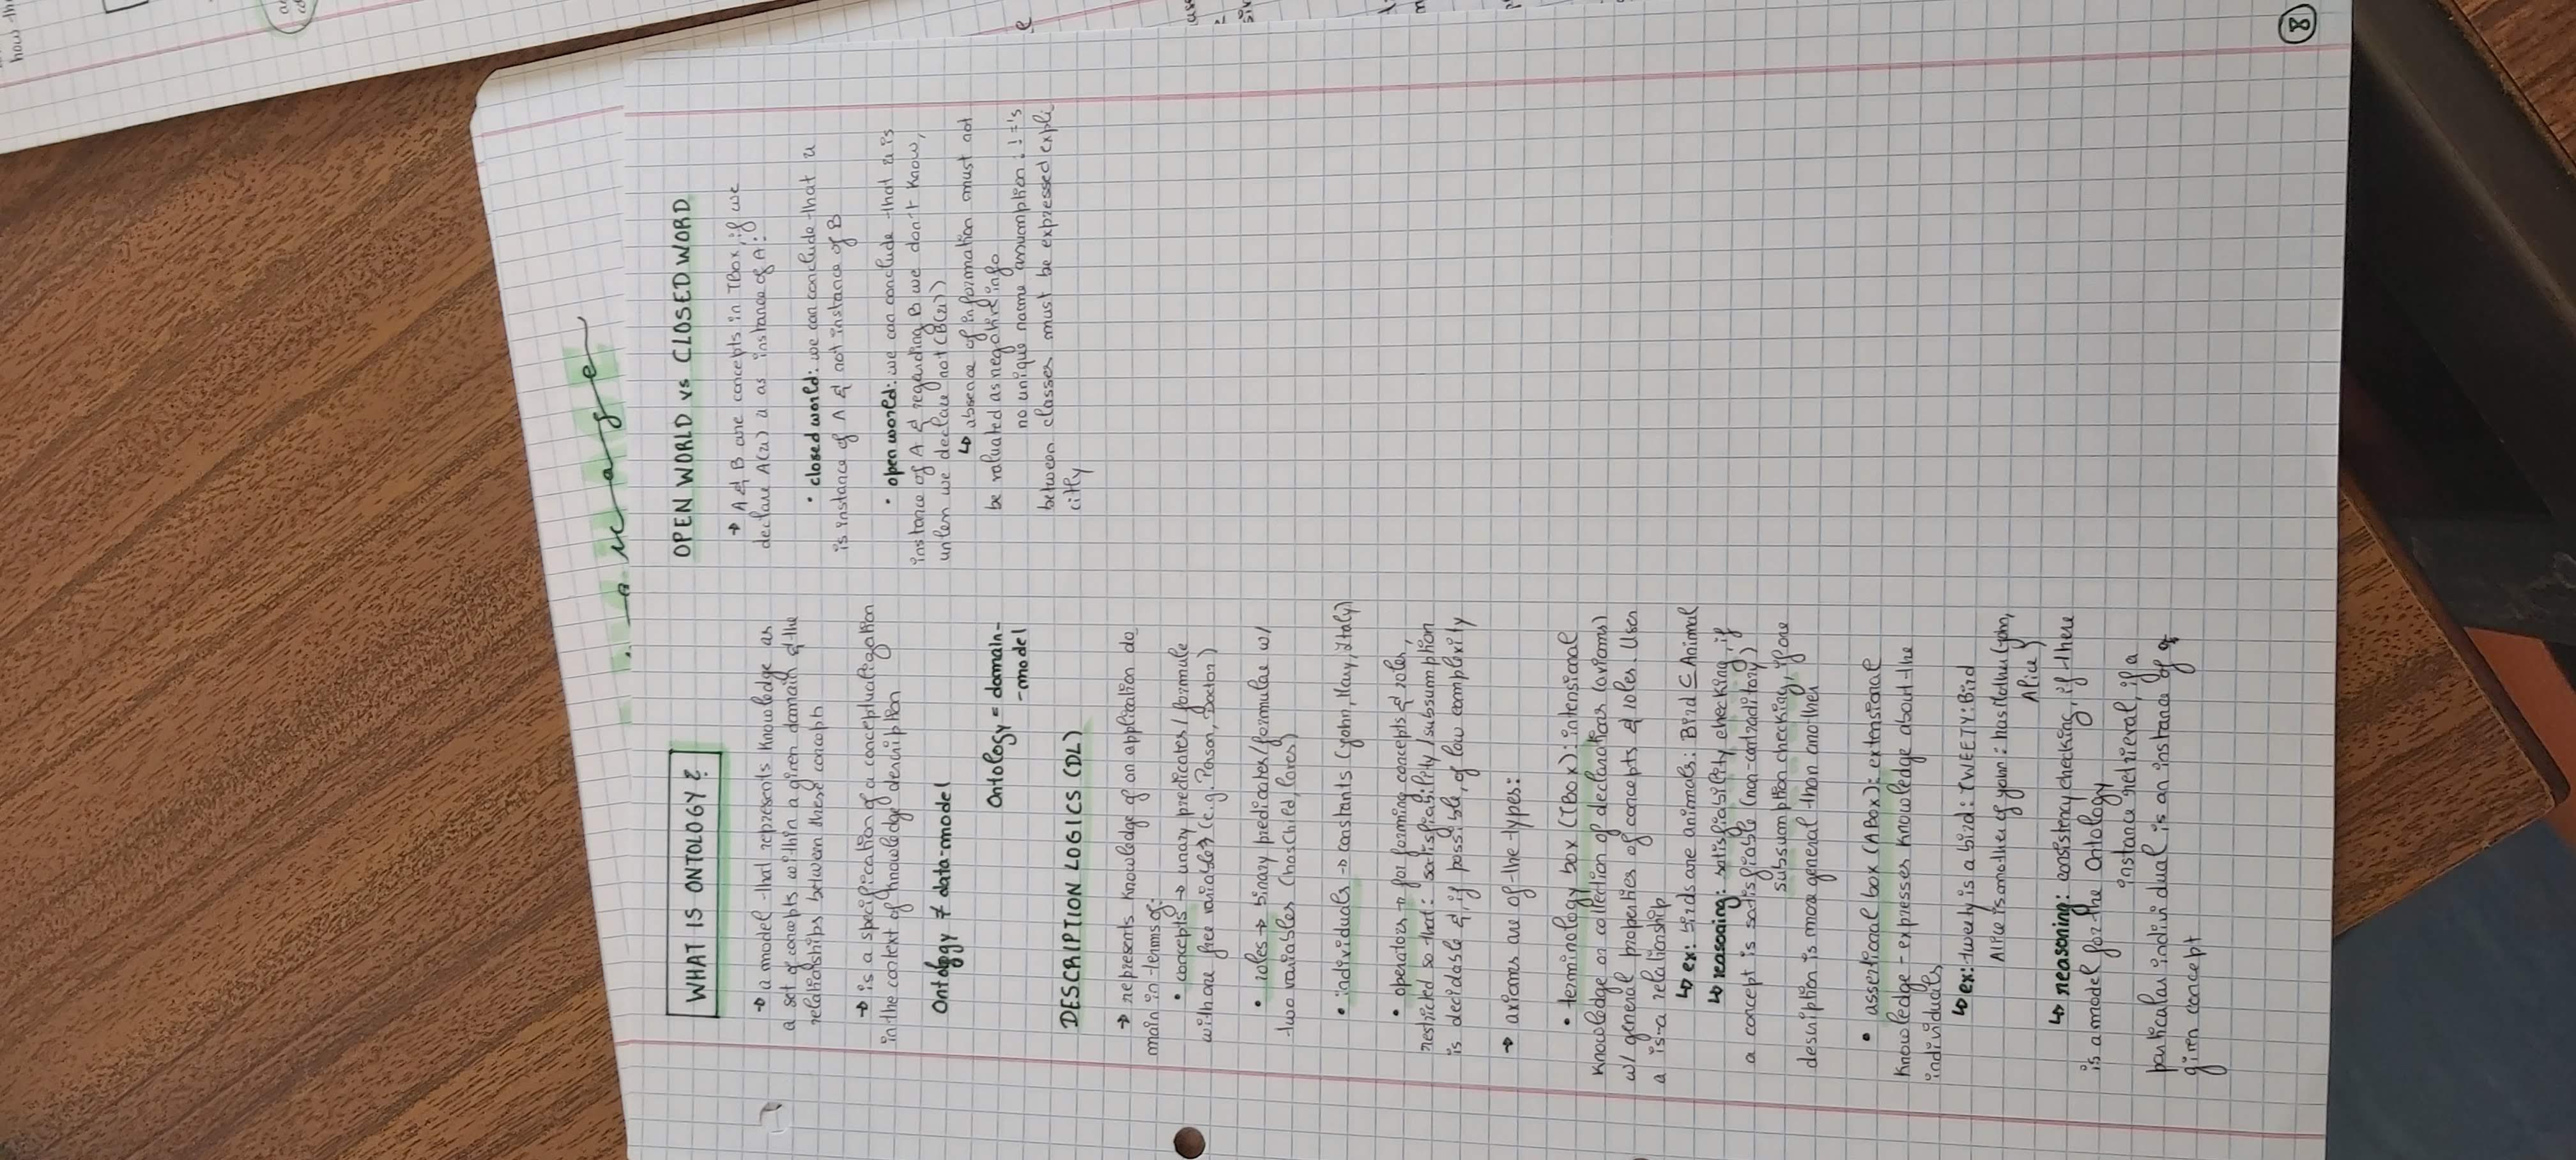 WHAT IS ONTOLOGY?
→ a model that represents knowledge as
a set of concepts within a given domain & the
relationships between these concepts
→ is a specification of a conceptualization
in the context of knowledge description
Ontology ≠ data-model
Ontology = domain-
-model
DESCRIPTION LOGICS (DL)
→ represents knowledge of an application do
main in terms of:
• concepts → unary predicates/formule
with one free variable (e.g. Person, Doctor)
• roles → binary predicates/formulae w/
two variables (hasChild, loves)
• individuals → constants (John, Mary, Italy)
• operators → for forming concepts & roles,
restricted so that: satisfiability/subsumption
is decidable &, if possible, of low complexity
→ axioms are of the types:
• terminology box (TBox): intensional
knowledge or collection of declarations (axioms)
w/ general properties of concepts & roles. Uses
a is-a relationship
↳ ex: birds are animals: Bird ⊆ Animal
↳ reasoning: satisfiability checking, if
a concept is satisfiable (non-contraditory)
subsumption checking, if one
description is more general than another
• assertional box (ABox): extensional
knowledge - expresses knowledge about the
individuals
↳ ex: tweety is a bird: TWEETY:Bird
Alice is mother of John: hasMother(John,
Alice)
↳ reasoning: consistency checking, if there
is a model for the Ontology
instance retrieval, if a
particular individual is an instance of a
given concept
OPEN WORLD vs CLOSED WORD
→ A & B are concepts in TBox, if we
declare A(u) u as instance of A:
• closed world: we can conclude that u
is instance of A & not instance of B
• open world: we can conclude that u is
instance of A & regarding B we don't know,
unless we declare not(B(u))
↳ absence of information must not
be valuated as negative info
no unique name assumption: !='s
between classes must be expressed expli
citly
8